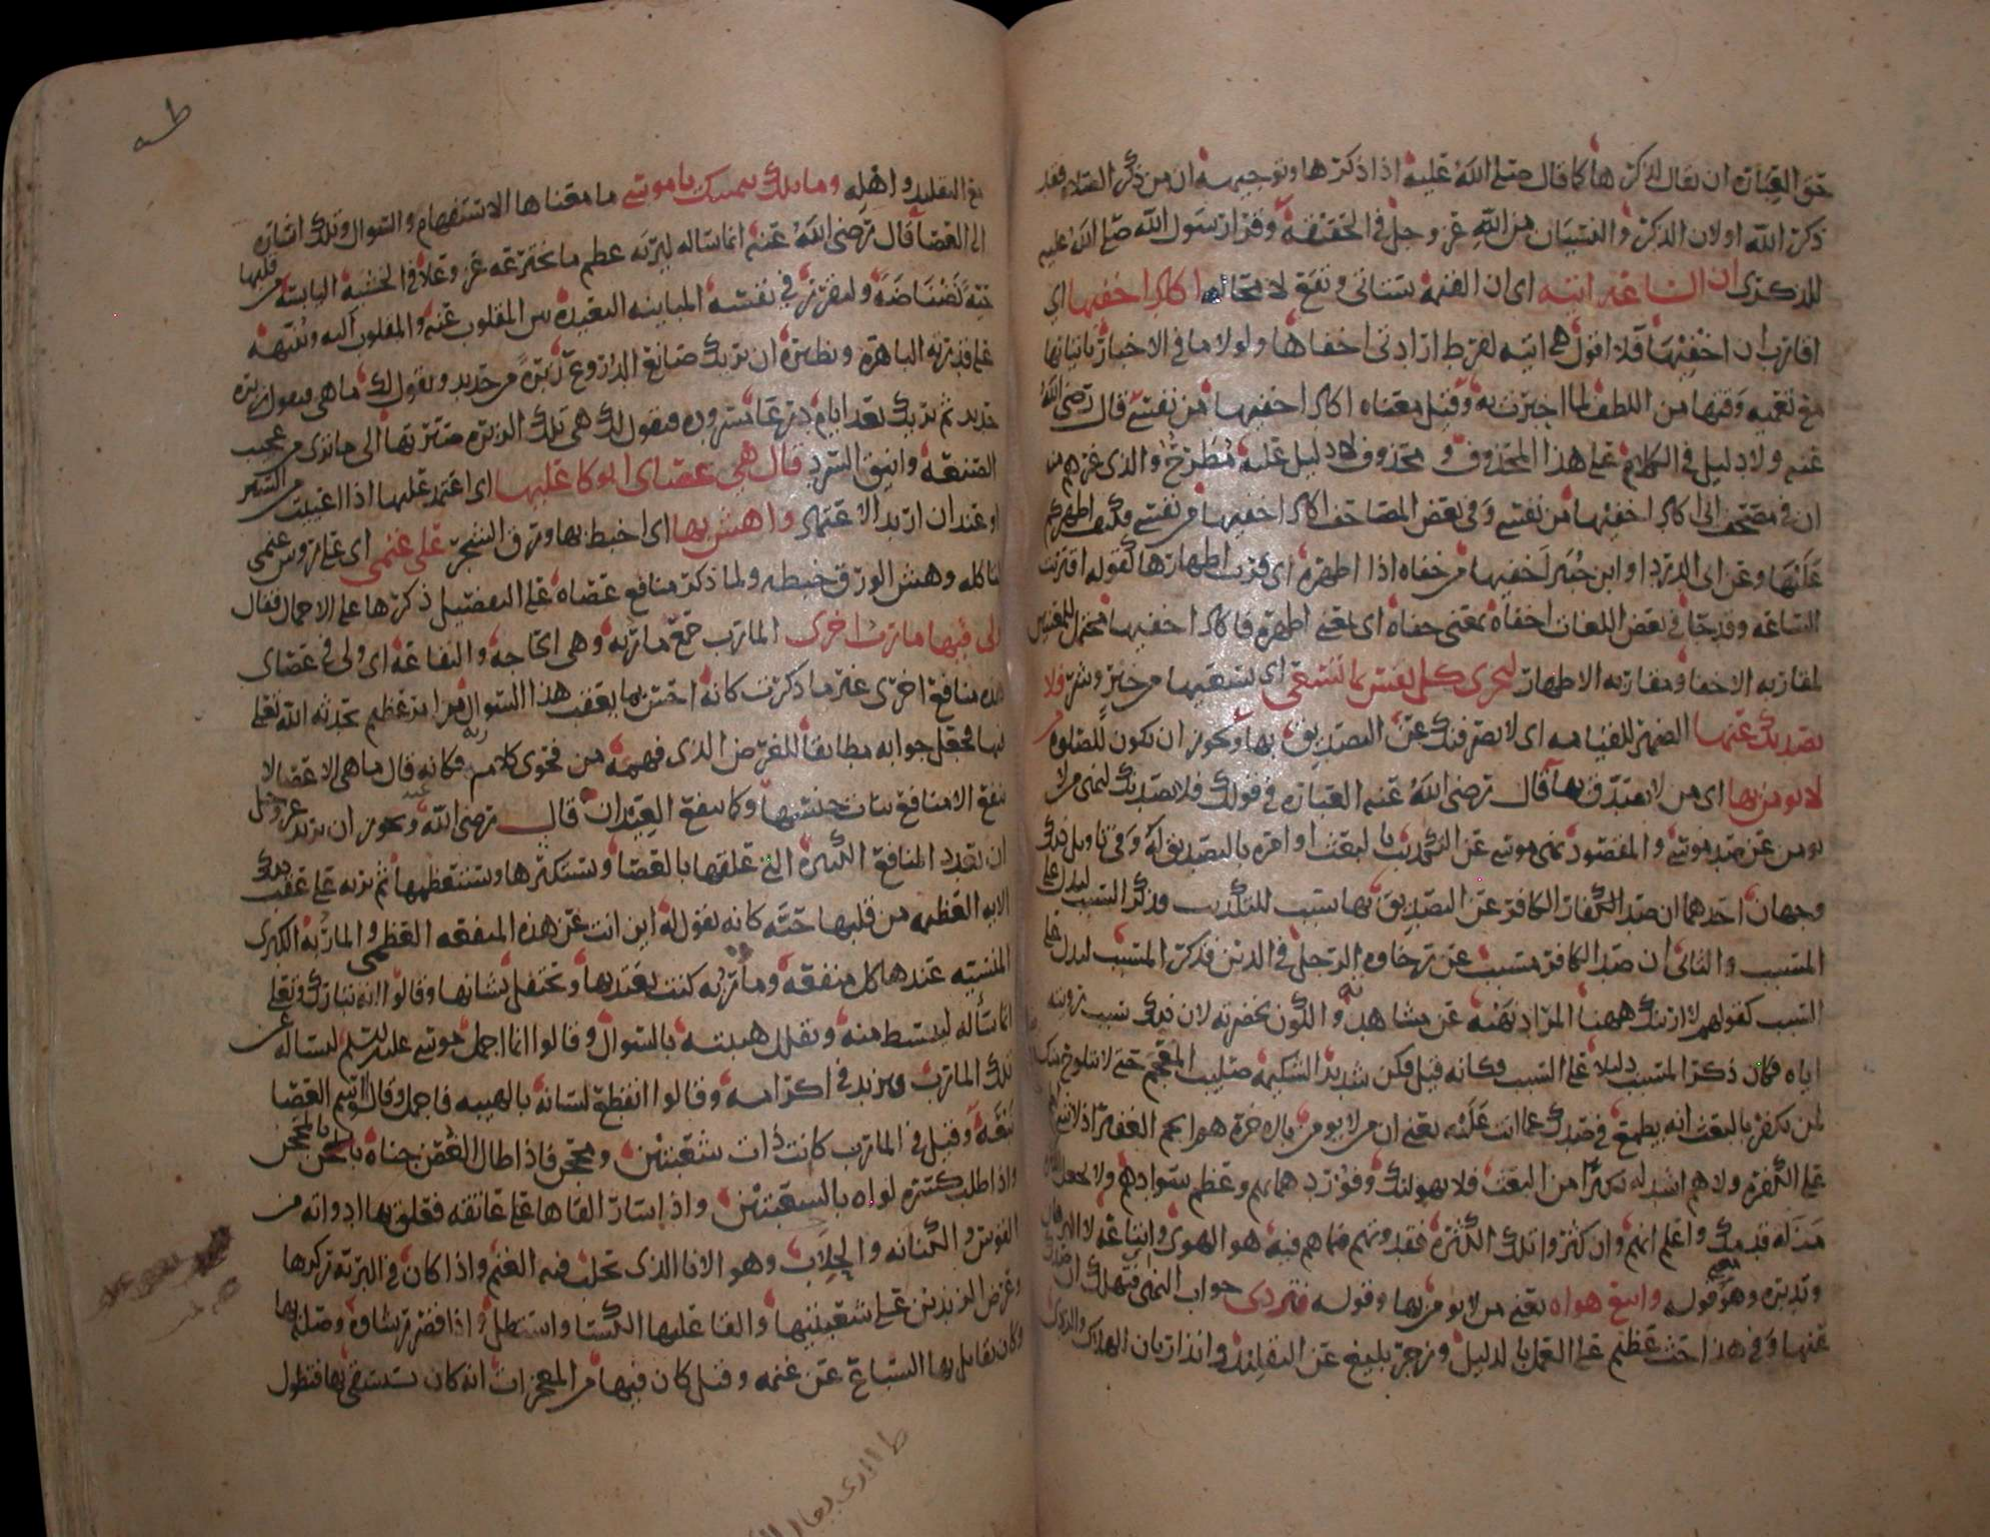 حق العبارة ان يقال لذكرها كما قال صلى الله عليه اذا ذكرها وتوجيهه ان من ذكر الصلاة فقد
ذكر الله او لان الذكر والنسيان من الله عز وجل في الحقيقة وقرا رسول الله صلى الله عليه
للذكرى ان الساعه اتيه اي ان القيمة ستاتي وتقع لا محاله اكاد اخفيها اي
اقارب ان اخفيها فلا اقول هي اتيه لفرط ارادتي اخفاها ولولا ما في الاخبار باتيانها
مع تعميه وقتها من اللطف لما اخبرت به وقيل معناه اكاد اخفيها من نفسي قال رضي الله
عنه ولا دليل في الكلام على هذا المحذوف و محذوف لا دليل عليه مطرح والذي غرهم منه
ان في مصحف ابي اكاد اخفيها من نفسي وفي بعض المصاحف اكاد اخفيها من نفسي فكيف اظهركم
عليها وعن ابي الدردا وابن جبير اخفيها من خفاه اذا اظهره اي قرب اظهارها كقوله اقتربت
الساعه وقد جا في بعض اللغات اخفاه بمعنى خفاه اي بمعنى اظهره فاكاد اخفيها محتمل للمعنيين
لمقاربه الاخفا ومقاربه الاظهار لتجزى كل نفس بما تسعى اي بسعيها من خير وشر فلا
يصدنك عنها الضمير للقيامه اي لا يصرفنك عن التصديق بها ويجوز ان يكون للصلوة من
لا يومن بها اي من لا يصدق بها قال رضي الله عنه العبارة في قولك فلا يصدنك لنهي من لا
يومن عن صد موسى والمقصود نهي موسى عن التكذيب بالبعث او امره بالتصديق له وفي تاويل ذلك
وجهان احدهما ان صد الكفار الكافر عن التصديق بها سبب للتكذيب فذكر السبب ليدل على
المسبب والثاني ان صد الكافر مسبب عن رخاوه الرجل في الدين فذكر المسبب ليدل على
السبب كقولهم لا ارينك ههنا المراد نهيه عن مشاهدته والكون بحضرته لان ذلك سبب رويته
اياه فكان ذكر المسبب دليلا على السبب وكانه قيل فكن شديد الشكيمه صليب المعجم حتى لا يتلوح منك
لمن يكفر بالبعث انه يطمع في صدك عما انت عليه يعني ان من لا يومن بالاخرة هم الجم الغفير اذ لا شي
على الكفره ولا هم اشد له نكرا من البعث فلا يهولنك وفور دهمايهم وعظم سوادهم ولا تجعل
مزلة قدمك واعلم انهم وان كثروا تلك الكثرة فقدوتهم فيما هم فيه هو الهوى واتباعه لا البرهان
وتدبره وهو معنى قوله واتبع هواه يعني من لا يومن بها وقوله فتردى جواب النهي فتهلك ان صدك
عنها وفي هذا حث عظيم على العمل بالدليل وزجر بليغ عن التقليد وانذار بان الهلاك والردى
مع التقليد واهله وما تلك بيمينك يا موسى ما معناها الاستفهام والسوال وتلك اشارة
الى العصا قال رضي الله عنه انما ساله ليريه عظم ما يخترعه عز وعلا في الخشبة اليابسة من قلبها
حية نضناضة وليقرر في نفسه المباينه البعيدة بين المقلوب عنه والمقلوب اليه وينبهه
على قدرته الباهرة ونظيره ان يريك صانع الدروع زبرة من حديد ويقول لك ما هي فتقول زبره
حديد ثم يريك بعد ايام درعا مسرودة فيقول لك هي تلك الزبره صيرتها الى ما ترى من عجيب
الصنعه وانيق السرد قال هي عصاى اتوكا عليها اي اعتمد عليها اذا اعييت من السير
او عند ان اريد الاعتماد واهش بها اي اخبط بها ورق الشجر على غنمي اي على روس غنمي
تاكله وهش الورق خبطه ولما ذكر منافع عصاه على التفصيل ذكرها على الاجمال فقال
ولي فيها مارب اخرى المارب جمع ماربه وهي الحاجة والنفاعة اي ولي في عصاي
هذه منافع اخرى غير ما ذكرت كانه احس بما يعقب هذا السوال من امر عظيم يحدثه الله تعلى
فيها فجعل جوابه مطابقا للغرض الذي فهمه من فحوى كلام ربه فكانه قال ما هي الا عصا لا
تنفع الا منافع بنات جنسها وكما ينفع العيدان قال رضي الله عنه ويجوز ان يريد عز وجل
ان يعدد المنافع الكثيرة التي علقها بالعصا ويستكثرها ويستعظمها ثم يريه على عقب ذلك
الايه العظيمه من قلبها حية كانه يقول له اين انت عن هذه المنفعه العظمى والماربة الكبرى
المنسيه عندها كل منفعة وماربه كنت تعتد بها وتحتفل بشانها وقالوا انه تبارك وتعلى
انما ساله ليبسط منه ويقلل هيبته بالسوال وقالوا انما اجمل موسى عليه السلم ليساله عن
تلك المارب ويزيد في اكرامه وقالوا انقطع لسانه بالهيبه فاجمل وقالوا اسم العصا
نبعة وقيل في المارب كانت ذات شعبتين ومحجن فاذا طال الغصن حناه بالمحجن
واذا طلب كسره لواه بالشعبتين واذ اسار القاها على عاتقه فعلق بها ادواته من
القوس والكنانه والحلاب وهو الانا الذي تحلب فيه الغنم واذا كان في البرية ركزها
وعرض الزندين على شعبتيها والقا عليها الكسا واستظل واذا قصر رشاوه وصله بها
وكان يقاتل بها السباع عن غنمه وقيل كان فيها من المعجزات انه كان يستقي بها فتطول